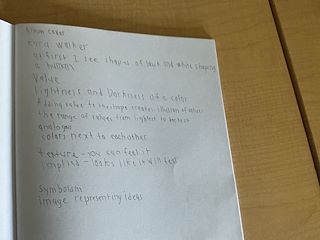 Album cover
Kara Walker
at first I see shapes of black and white shaping
a human
Value
lightness and Darkness of a color
Adding value to the shape creates illusion of values
the range of values from lightest to darkest
analogous
colors next to each other
texture - you can feel it
implied - looks like it will feel
Symbolism
image representing ideas